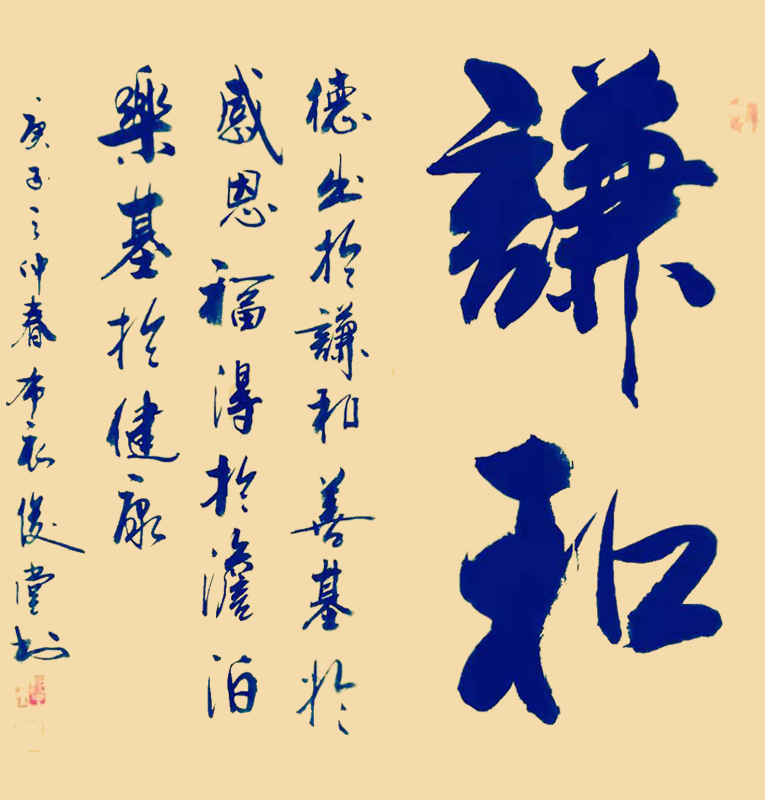 謙和
德出於謙和善基於
感恩福得於澹泊
樂基於健康
庚子之仲春布衣俊堂书